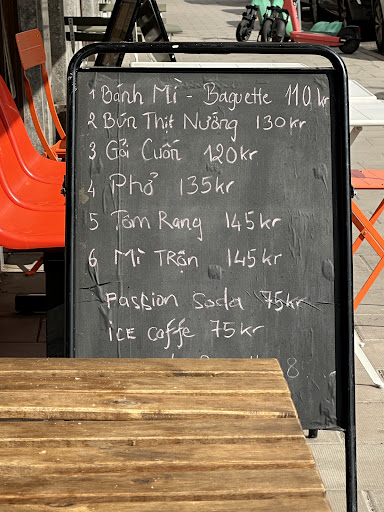 1 Bánh Mì - Baguette 110 kr
2 Bún Thịt Nướng 130 kr
3 Gỏi Cuốn 120 kr
4 Phở 135 kr
5 Tôm Rang 145 kr
6 Mì Trộn 145 kr
Passion Soda 75 kr
ice coffe 75 kr